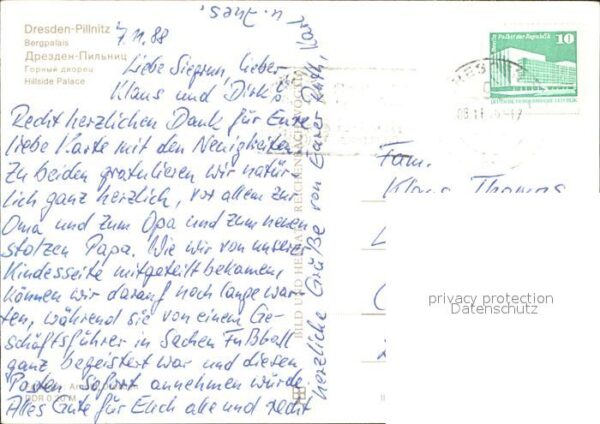 Dresden-Pillnitz
Bergpalais
Дрезден-Пильниц
Горный дворец
Hillside Palace
7.11.88
Liebe Siegrun, lieber
Klaus und Dirk!
Recht herzlichen Dank für Eure
liebe Karte mit den Neuigkeiten.
Zu beiden gratulieren wir natür-
lich ganz herzlich, vor allem zur
Oma und zum Opa und zum neuen
stolzen Papa. Wie wir von unserer
Kinderseite mitgeteilt bekamen,
können wir darauf noch lange war-
ten, während sie von einem Ge-
schäftsführer in Sachen Fußball
ganz begeistert war und diesen
Posten sofort annehmen würde.
Alles Gute für Euch alle und recht
herzliche Grüße von Eurer Ruth, Karl
u. Ines.
BILD UND HEIMAT REICHENBACH
DDR 0,20 M
10
DEUTSCHE DEMOKRATISCHE REPUBLIK
Fam.
Klaus Thomas
privacy protection
Datenschutz